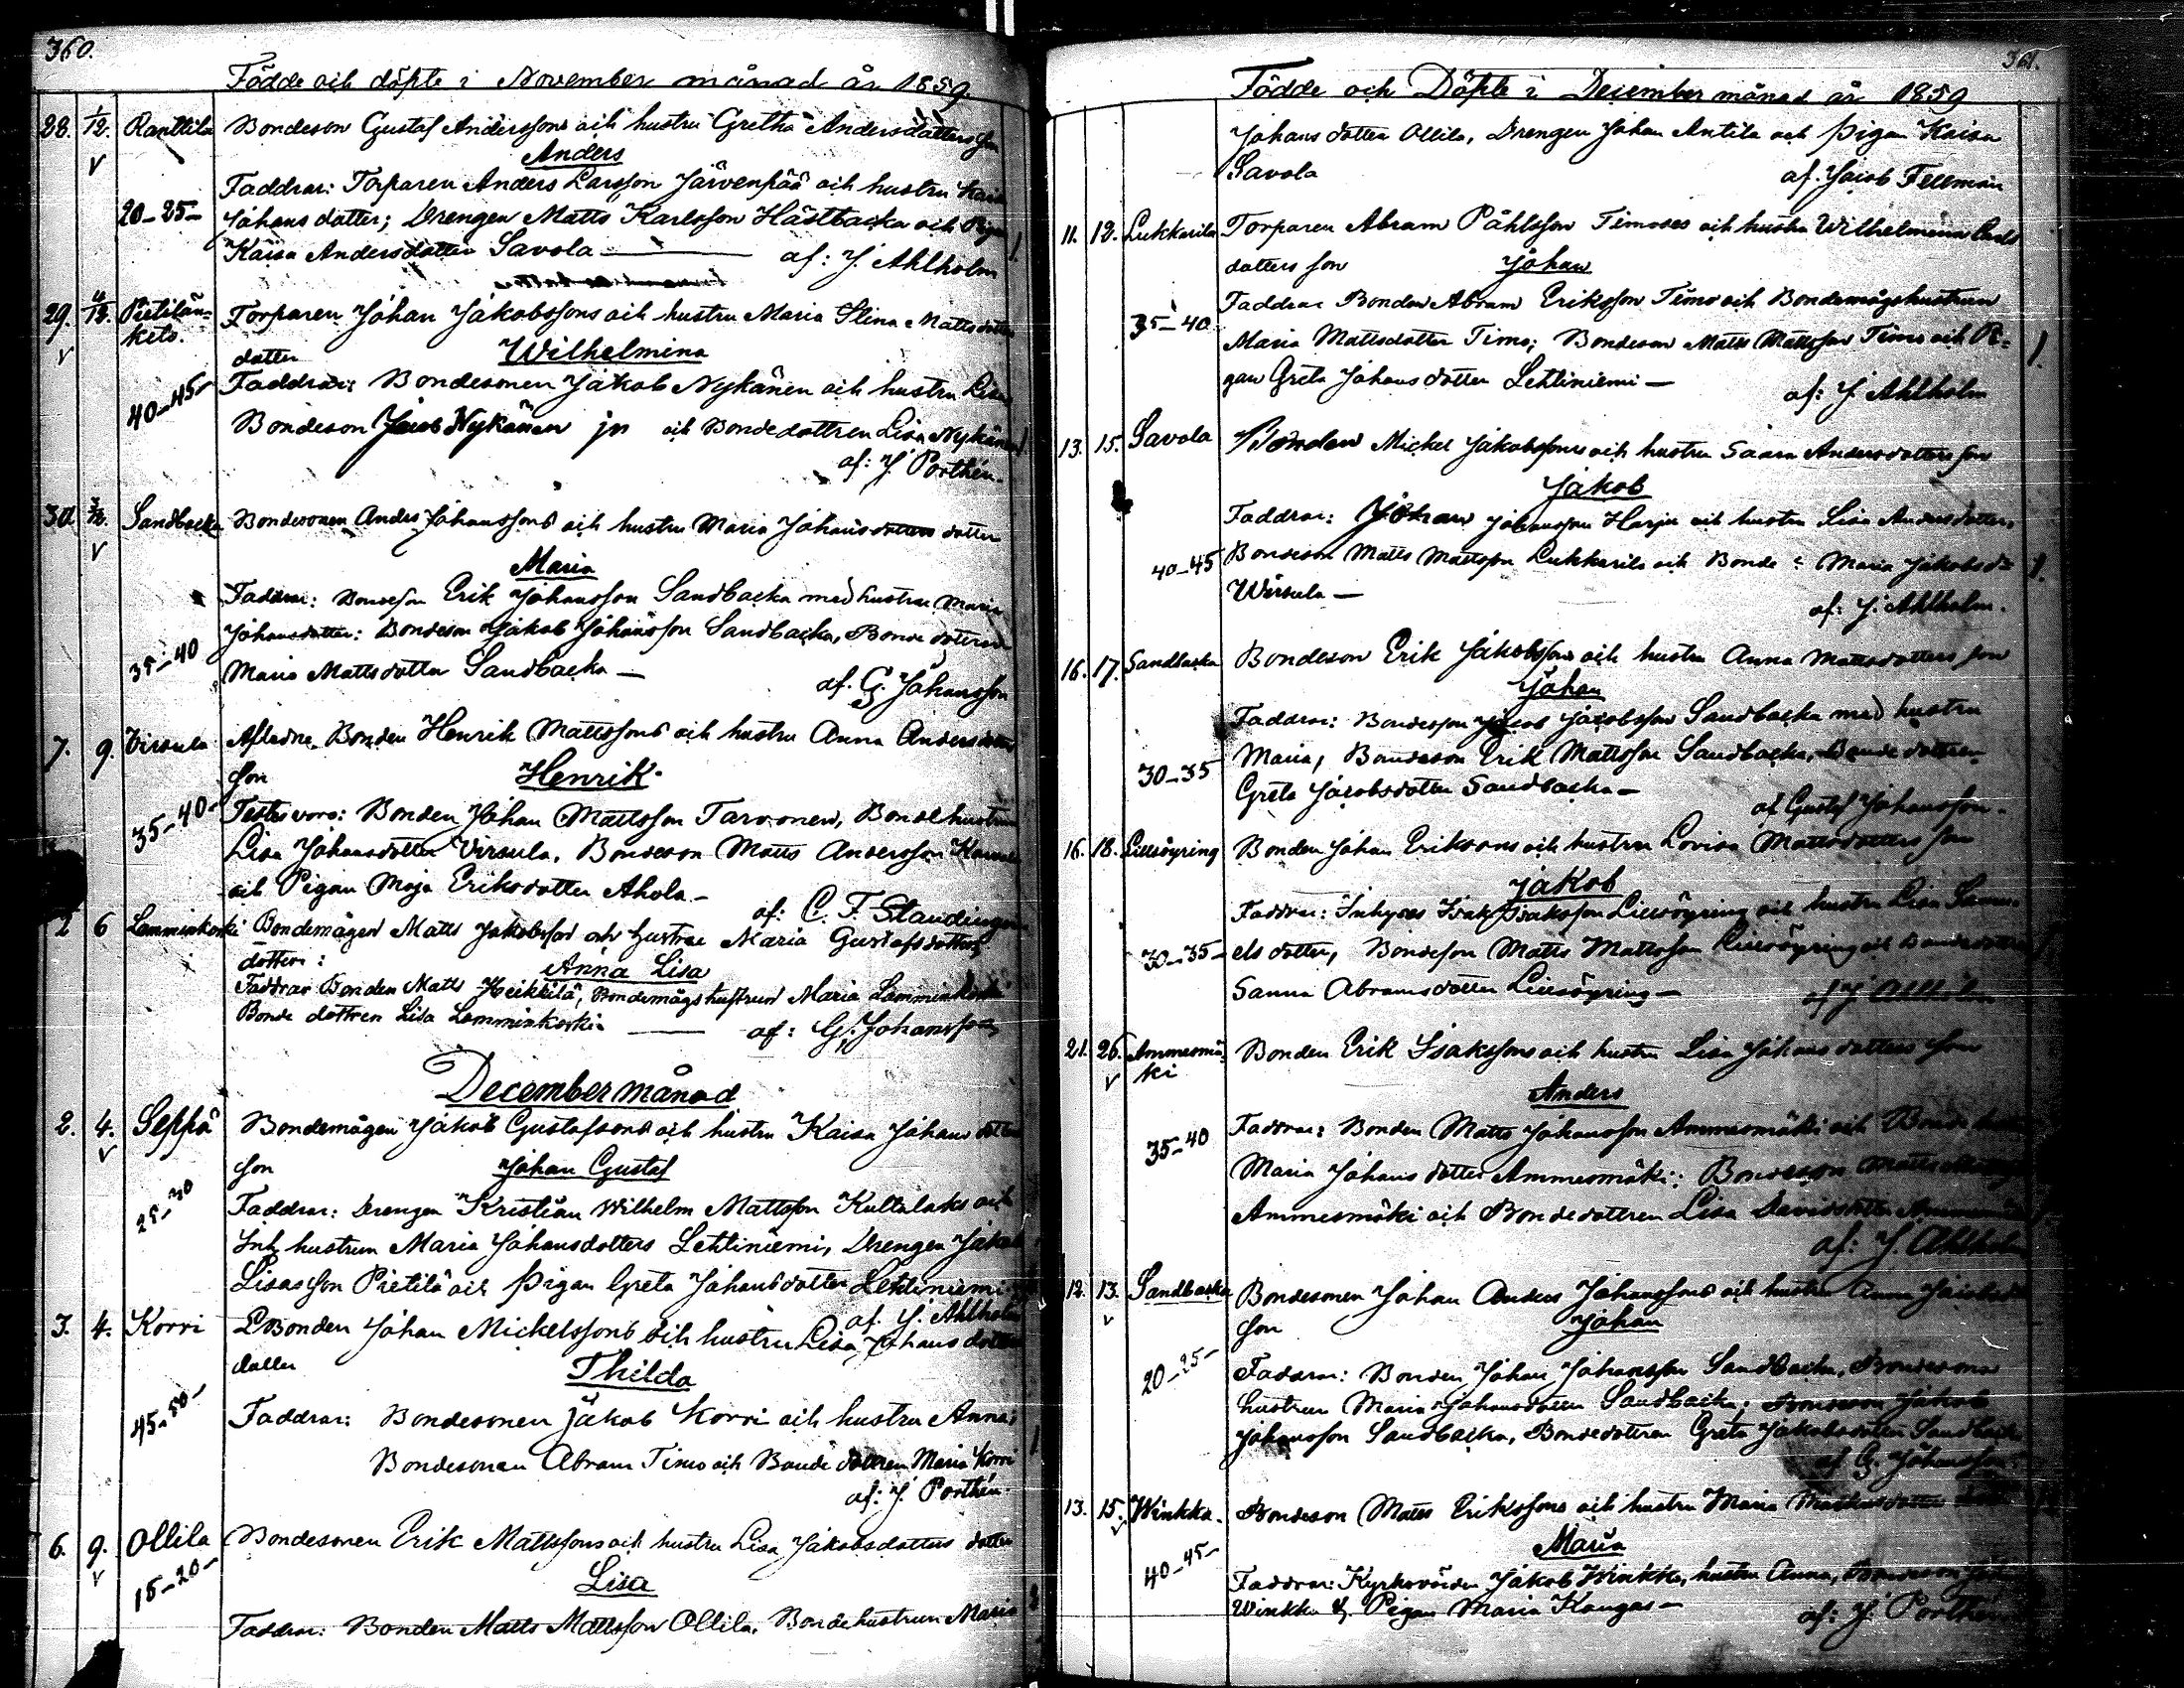 360.
Födde och döpte i November månad år 1859
28. 1/12. Ranttila Bondeson Gustaf Anderssons och hustru Gretha Andersdotters son
Anders
Faddrar: Torparen Anders Larsson Järvenpää och hustru Kaisa
20-25- Johans dotter; Drengen Matts Karlsson Hästbacka och Pigan
Kaisa Andersdotter Savola — af: J. Ahlholm
29. 4/12. Pietilän= Torparen Johan Jakobssons och hustru Maria Stina Mattsdotters
keto. dotter Wilhelmina
Faddrar: Bondesonen Jakob Nykänen och hustru Lisa
40-45- Bondeson Jacob Nykänen jr och Bondedottren Lisa Nykänen
af: J. Porthén.
30 3/12. Sandbacka Bondesonen Anders Johanssons och hustru Maria Johansdotters dotter
Maria
Faddrar: Bondeson Erik Johansson Sandbacka med hustru Maria
Johansdotter: Bondeson Jakob Johansson Sandbacka, Bonde dottren
35-40 Maria Mattsdotter Sandbacka —
af. G. Johansson
7. 9. Virsula Aflidne Bonden Henrik Mattssons och hustru Anna Andersdotters
son Henrik.
35-40- Testes voro: Bonden Johan Mattsson Tarvonen, Bondehustrun
Lisa Johansdotter Virsula, Bondeson Matts Andersson
och Pigan Maja Eriksdotter Ahola.-
af: C. F. Standinger
2 6 Lamminkoski Bondemågen Matts Jakobsson och hustrue Maria Gustafsdotters
dotter: Anna Lisa
Faddrar Bonden Matts Heikkilä, Bondemågshustrun Maria Lamminkoski
Bonde dottren Lisa Lamminkoski — af: G. Johansson
December månad
2. 4. Seppä Bondemågen Jakob Gustafssons och hustru Kaisa Johans dotters
son Johan Gustaf
25-30 Faddrar: Drengen Kristian Wilhelm Mattsson Kultalaks och
Inh. hustrun Maria Johansdotters Lehtiniemi, Drengen Jakob
Lisasson Pietilä och Pigan Greta Johansdotter Lehtiniemi
af. J. Ahlholm
3. 4. Korri Bonden Johan Mickelssons och hustru Lisa Johans dotters
dotter Thilda
45-50- Faddrar: Bondesonen Jakob Korri och hustru Anna;
Bondesonen Abram Timo och Bonde dottren Maria Korri
af: J. Porthén.
6. 9. Ollila Bondesonen Erik Mattssons och hustru Lisa Jakobsdotters dotter
15-20- Lisa
Faddrar: Bonden Matts Mattsson Ollila, Bondehustrun Maria
361.
Födde och Döpte i December månad år 1859
Johans dotter Ollila, Drengen Johan Antila och Pigan Kaisa
Savola af. Jacob Fellman
11. 12. Lukkarila Torparen Abram Påhlsson Timoses och hustru Wilhelmina Carls
dotters son Johan
Faddrar Bonden Abram Eriksson Timo och Bondemågshustrun
35-40 Maria Mattsdotter Timo; Bondeson Matts Mattsson Timo och Pi=
gan Greta Johansdotter Lehtiniemi —
af: J. Ahlholm
13. 15. Savola Bonden Michel Jakobssons och hustru Saara Andersdotters son
Jakob
Faddrar: Johan Johansson Harju och hustru Lisa Andersdotter,
40-45 Bondeson Matts Mattsson Lukkarila och Bonde Maria Jakobsdr
Wirsula —
af: J. Ahlholm.
16. 17. Sandbacka Bondeson Erik Jakobssons och hustru Anna Mattsdotters son
Johan
Faddrar: Bondeson Jacob Jacobsson Sandbacka med hustru
30-35 Maria, Bondeson Erik Mattsson Sandbacka, Bonde dottren
Greta Jacobsdotter Sandbacka —
af Gustaf Johansson.
16. 18. Lillsöyring Bonden Johan Erikssons och hustru Lovisa Mattsdotters son
Jakob
Faddrar: Inhyses Isak Isaksson Lillsöyring och hustru Lisa Samu-
30-35- els dotter, Bondeson Matts Mattsson Lillsöyring och Bondedottren
Sanna Abramsdotter Lillsöyring —
af J Ahlholm
21. 26. Ammesmä- Bonden Erik Isakssons och hustru Lisa Johans dotters son
ki
Anders
35-40 Faddrar: Bonden Matts Johansson Ammesmäki och Bonde
Maria Johans dotter Ammesmäki; Bondeson Matts
Ammesmäki och Bondedottren Lisa Davidsdotter
af: J. Ahlholm
12. 13. Sandbacka Bondesonen Johan Anders Johanssons och hustru Anna
son Johan
20-25- Faddrar: Bonden Johan Johansson Sandbacka, Bondesons
hustrun Maria Johansdotter Sandbacka; Bondeson Jakob
Johansson Sandbacka, Bondedottren Greta Jakobsdotter Sandbacka
af G. Johansson
13. 15. Winkka. Bondeson Matts Erikssons och hustru Maria
Maria
40-45- Faddrar: Kyrkovärden Jakob Winkka, hustru Anna, Bondeson
Winkka & Pigan Maria Kangas —
af: J. Porthén